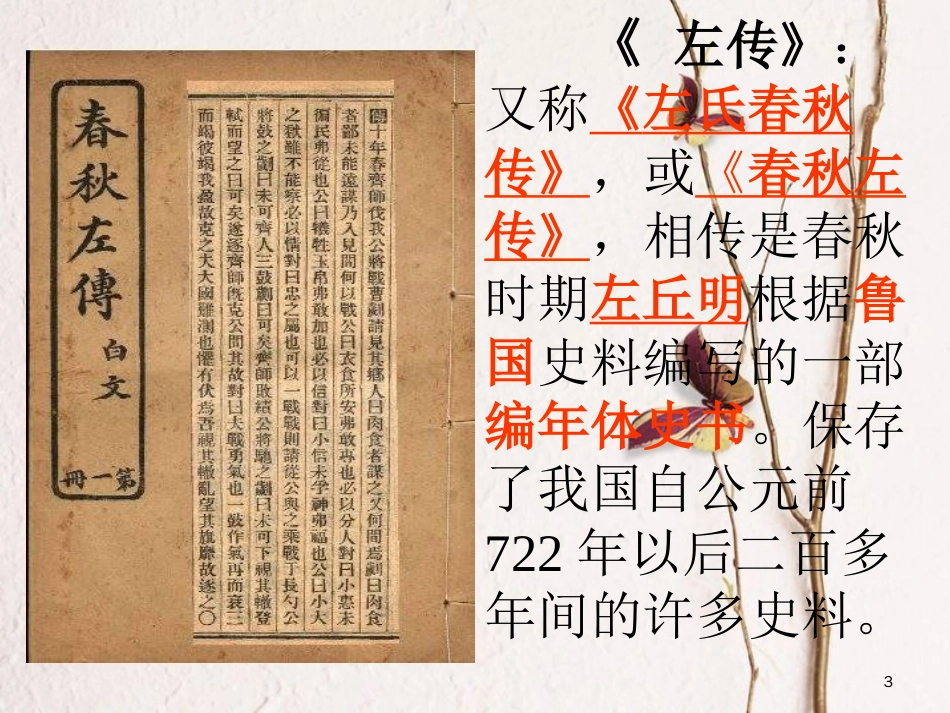 春秋左傳
白文
第一冊
十年春齊師伐我公將戰曹劌請見其鄉人曰肉食者謀之又何間焉劌曰肉食
者鄙未能遠謀乃入見問何以戰公曰衣食所安弗敢專也必以分人對曰小惠未
徧民弗從也公曰犧牲玉帛弗敢加也必以信對曰小信未孚神弗福也公曰小大
之獄雖不能察必以情對曰忠之屬也可以一戰戰則請從公與之乘戰于長勺公
將鼓之劌曰未可齊人三鼓劌曰可矣齊師敗績公將馳之劌曰未可下視其轍登
軾而望之曰可矣遂逐齊師既克公問其故對曰夫戰勇氣也一鼓作氣再而衰三
而竭彼竭我盈故克之夫大國難測也懼有伏焉吾視其轍亂望其旗靡故逐之〇
《 左传》：
又称《左氏春秋
传》，或《春秋左
传》，相传是春秋
时期左丘明根据鲁
国史料编写的一部
编年体史书。保存
了我国自公元前
722 年以后二百多
年间的许多史料。
3